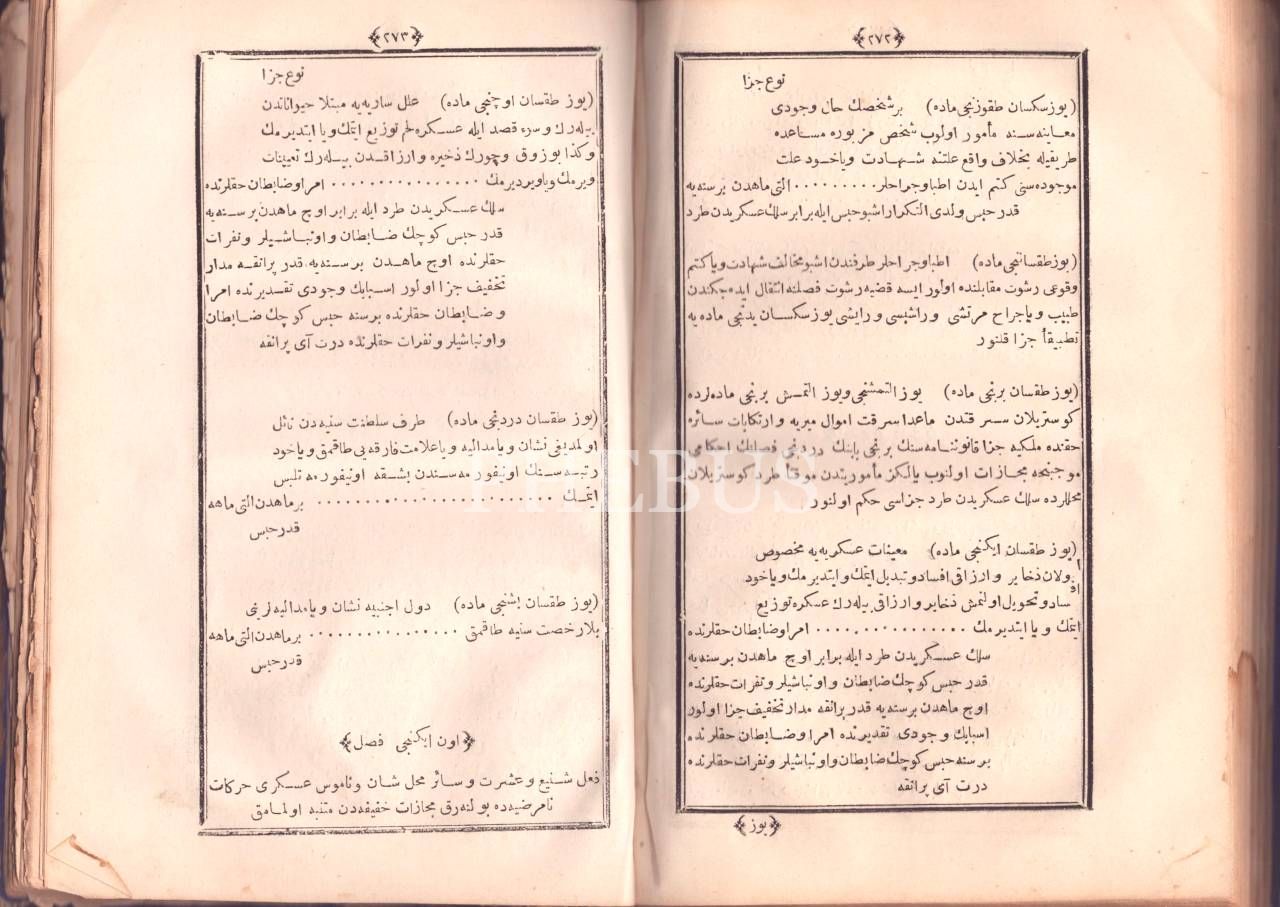 ﴿٢٧٢﴾
نوع جزا
(يوز سكسان طقوزنجی ماده) بر شخصك حال وجودی
معاينه سنه مأمور اولوب شخص مزبوره مساعده
طريقيله بخلاف واقع علتنه شهادت وياخود علت
موجوده سنی كتم ايدن اطبا وجراحلر . . . . . . . . . التی ماهدن برسنه يه
قدر حبس ولدی التكرار اشبو حبس ايله برابر سلك عسكريدن طرد
(يوز طقساننجی ماده) اطبا وجراحلر طرفندن اشبو مخالف شهادت ويا كتم
وقوعی رشوت مقابلنده اولور ايسه قضيه رشوت فصلنه انتقال ايده جكندن
طبيب وياجراح مرتشی وراشيسی ورايشی يوز سكسان يدنجی ماده يه
تطبيقاً جزا قلنور
(يوز طقسان برنجی ماده) يوز التمشنجی ويوز التمش برنجی ماده لرده
كوستريلان سرقتدن ماعدا سرقت اموال ميريه وارتكابات سائره
حقنده ملكيه جزا قانوننامه سنك برنجی بابنك دردنجی فصلنك احكامی
موجبنجه مجازات اولنوب يالكز مأموريتدن موقتاً طرد كوستريلان
محللرده سلك عسكريدن طرد جزاسی حكم اولنور
(يوز طقسان ايكنجی ماده) معينات عسكريه يه مخصوص
اولان ذخاير وارزاقی افساد وتبديل ايتمك وايتديرمك وياخود
افساد وتحويل اولنمش ذخاير وارزاقی بيله رك عسكره توزيع
ايتمك ويا ايتديرمك . . . . . . . . . . . . . . امرا وضابطان حقلرنده
سلك عسكريدن طرد ايله برابر اوچ ماهدن برسنه يه
قدر حبس كوچك ضابطان واونباشيلر ونفرات حقلرنده
اوچ ماهدن برسنه يه قدر پرانقه مدار تخفيف جزا اولور
اسبابك وجودی تقديرنده امرا وضابطان حقلرنده
برسنه حبس كوچك ضابطان واونباشيلر ونفرات حقلرنده
درت آی پرانقه
﴿يوز﴾
﴿٢٧٣﴾
نوع جزا
(يوز طقسان اوچنجی ماده) علل ساريه يه مبتلا حيواناتدن
بيله رك وسوء قصد ايله عسكره لحم توزيع ايتمك ويا ايتديرمك
وكذا بوزوق وچورك ذخيره وارزاقدن بيله رك تعيينات
ويرمك وياويرديرمك . . . . . . . . . . . . . . . . امرا وضابطان حقلرنده
سلك عسكريدن طرد ايله برابر اوچ ماهدن برسنه يه
قدر حبس كوچك ضابطان واونباشيلر ونفرات
حقلرنده اوچ ماهدن برسنه يه قدر پرانقه مدار
تخفيف جزا اولور اسبابك وجودی تقديرنده امرا
وضابطان حقلرنده برسنه حبس كوچك ضابطان
واونباشيلر ونفرات حقلرنده درت آی پرانقه
(يوز طقسان دردنجی ماده) طرف سلطنت سنيه دن نائل
اولمديغی نشان ويا مداليه ويا علامت فارقه يی طاقمق وياخود
رتبه سنك اونيفورمه سندن بشقه اونيفورمه تلبس
ايتمك . . . . . . . . . . . . . . . . . . . . . . . . برماهدن التی ماهه
قدر حبس
(يوز طقسان بشنجی ماده) دول اجنبيه نشان ويا مداليه لرينی
بلا رخصت سنيه طاقمق . . . . . . . . . . . . . . . برماهدن التی ماهه
قدر حبس
﴿اون ايكنجی فصل﴾
فعل شنيع وعشرت وسائر مخل شان وناموس عسكری حركات
نامرضيه ده بولنه رق مجازات خفيفه دن متنبه اولمامق
PHEBUS